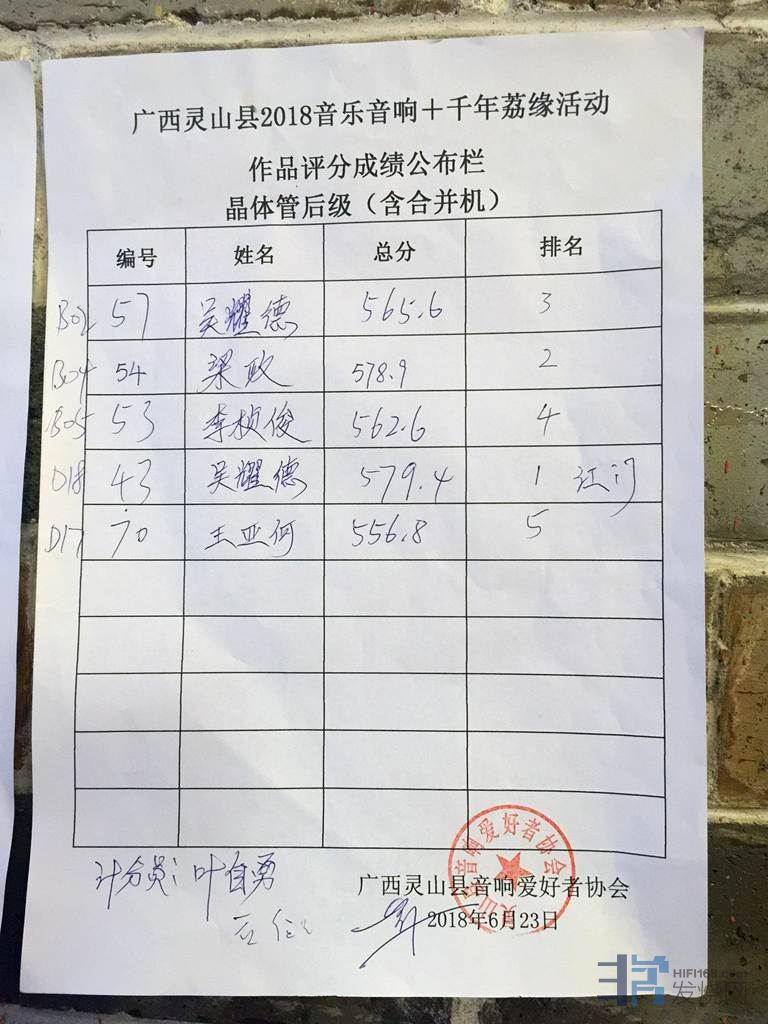 广西灵山县2018音乐音响＋千年荔缘活动
作品评分成绩公布栏
晶体管后级（含合并机）
编号 姓名 总分 排名
B02 57 吴耀德 565.6 3
B04 54 梁政 578.9 2
B05 53 李桢俊 562.6 4
D18 43 吴耀德 579.4 1 江门
D17 70 王亚何 556.8 5
计分员：叶自勇
广西灵山县音响爱好者协会
2018年6月23日
音响爱好者协会
HIFI168.com
发烧网